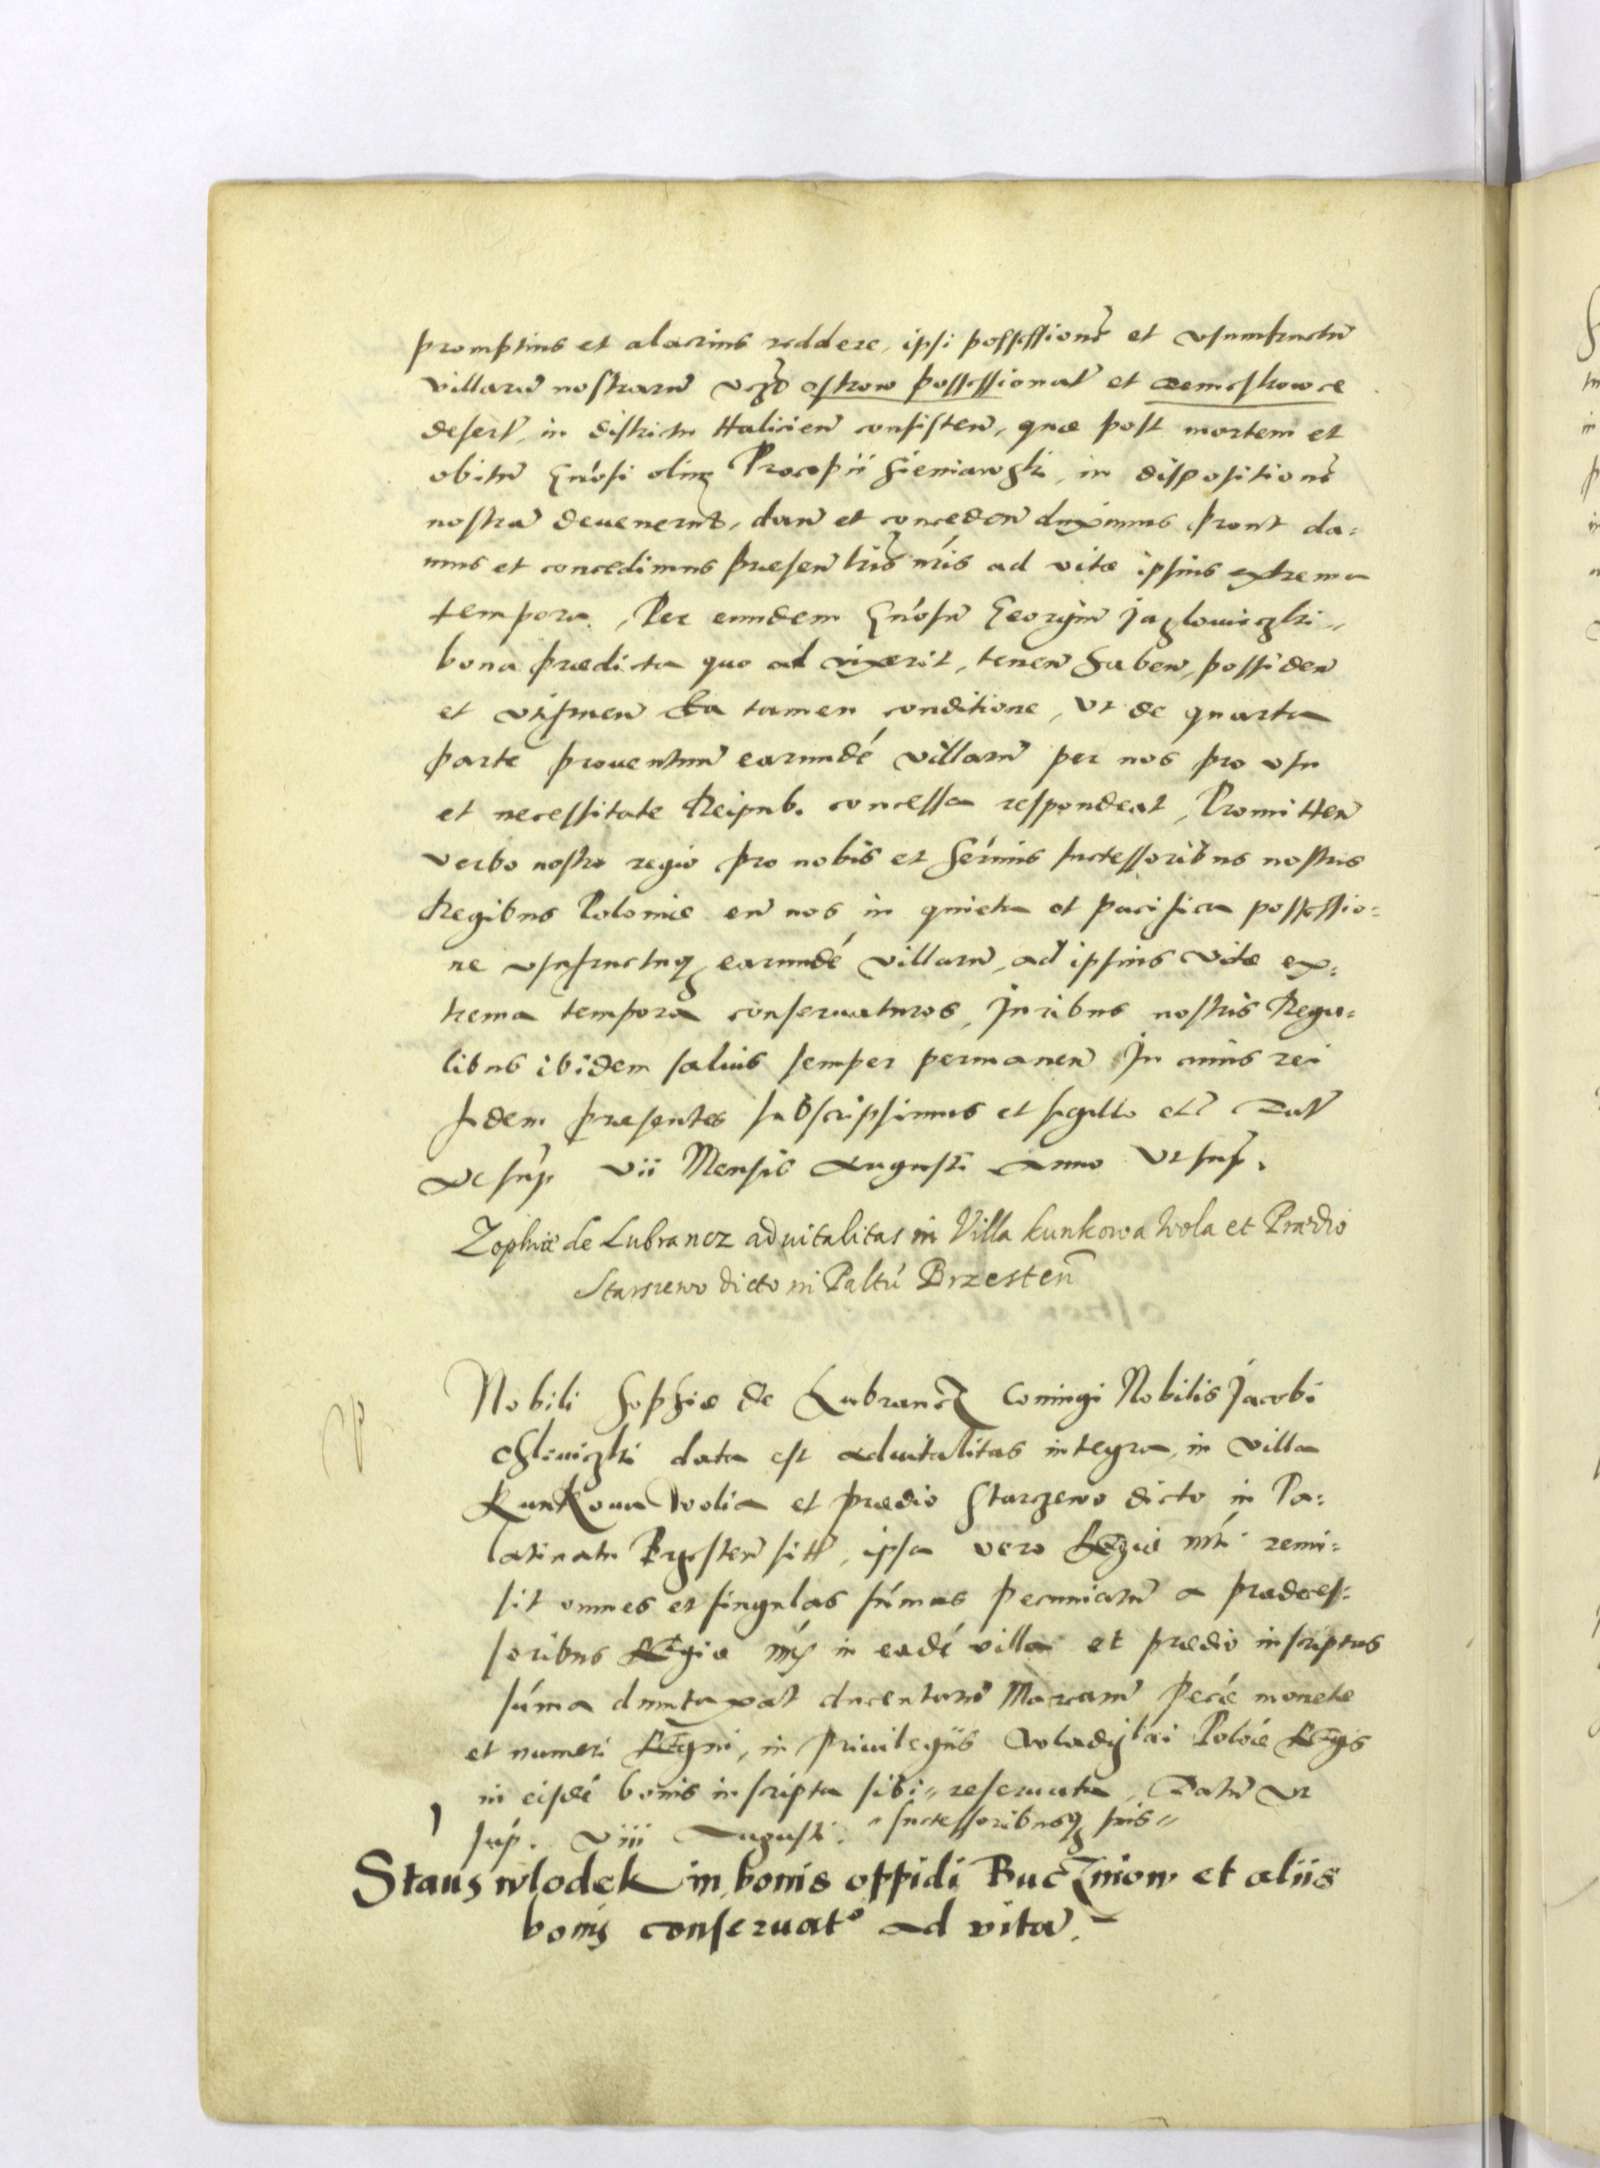 promptius et alacrius reddere, ipsi possessionē et vsumfructū
villarū nostrarū vcꝫ ostrow possessionat̃ et czemestrowce
desert̃, in districtu Haliciēn consisten̄, quæ post mortem et
obitū Gn̄osi olim Procopii Sieniawski, in dispositionē
nostrā deuenerūt, dan̄ et conceden̄ duximus prout da=
mus et concedimus præsen̄ lr̄is nr̄is ad vitæ ipsius extrema
tempora, Per eundem Gn̄osū Georgiū Jazlowieczki
bona prædicta quo ad vixerit, tenen̄ haben̄, possiden̄
et vtifruen̄ Ea tamen conditione, vt de quarta
parte prouentuū earundē villarū per nos pro vsu
et necessitate Reipub. concessa respondeat, Promitten̄
verbo nostro regio pro nobis et Ser̄mis successoribus nostris
Regibus Poloniæ eū nos in quieta et pacifica possessio=
ne vsufructuqꝫ earundē villarū, ad ipsius vitæ ex=
trema tempora conseruaturos, Juribus nostris Rega=
libus ibidem saluis semper permanen̄ In cuius rei
fidem præsentes subscripsimus et sigillo etc̄ Dat̃
vt sup̄ vii Mensis Augusti Anno vt sup̄.
Zophiæ de Lubrancz aduitalitas in Villa kunkowa Wola et Prædio
Starzewo dicto in Paltū Brzesten̄
Nobili Sophiæ de Lubrancz Coniugi Nobilis Jacobi
data est aduitalitas integra, in villa
Kunkoua Wolia et prædio Starzewo dicto in Pa=
latinatu Brzesten̄ sitt̃, ipsa vero Regiæ mt̄i remi=
sit omnes et singulas sūmas pecuniarū a prædeces=
soribus Regiæ mt̄is in eadē villa et prædio inscriptas
sūma duntaxat ducentarū Marcarū pec̄æ monetæ
et numeri Regni, in Priuilegiis Wladislai Polōiæ Regis
in eisdē bonis inscripta sibi " reseruata, Datū vt
sup̄. viii Augusti. " successoribusqꝫ suis "
Stan̄us wlodek in bonis oppidi Buczniow et aliis
bonis conseruat° ad vitā.